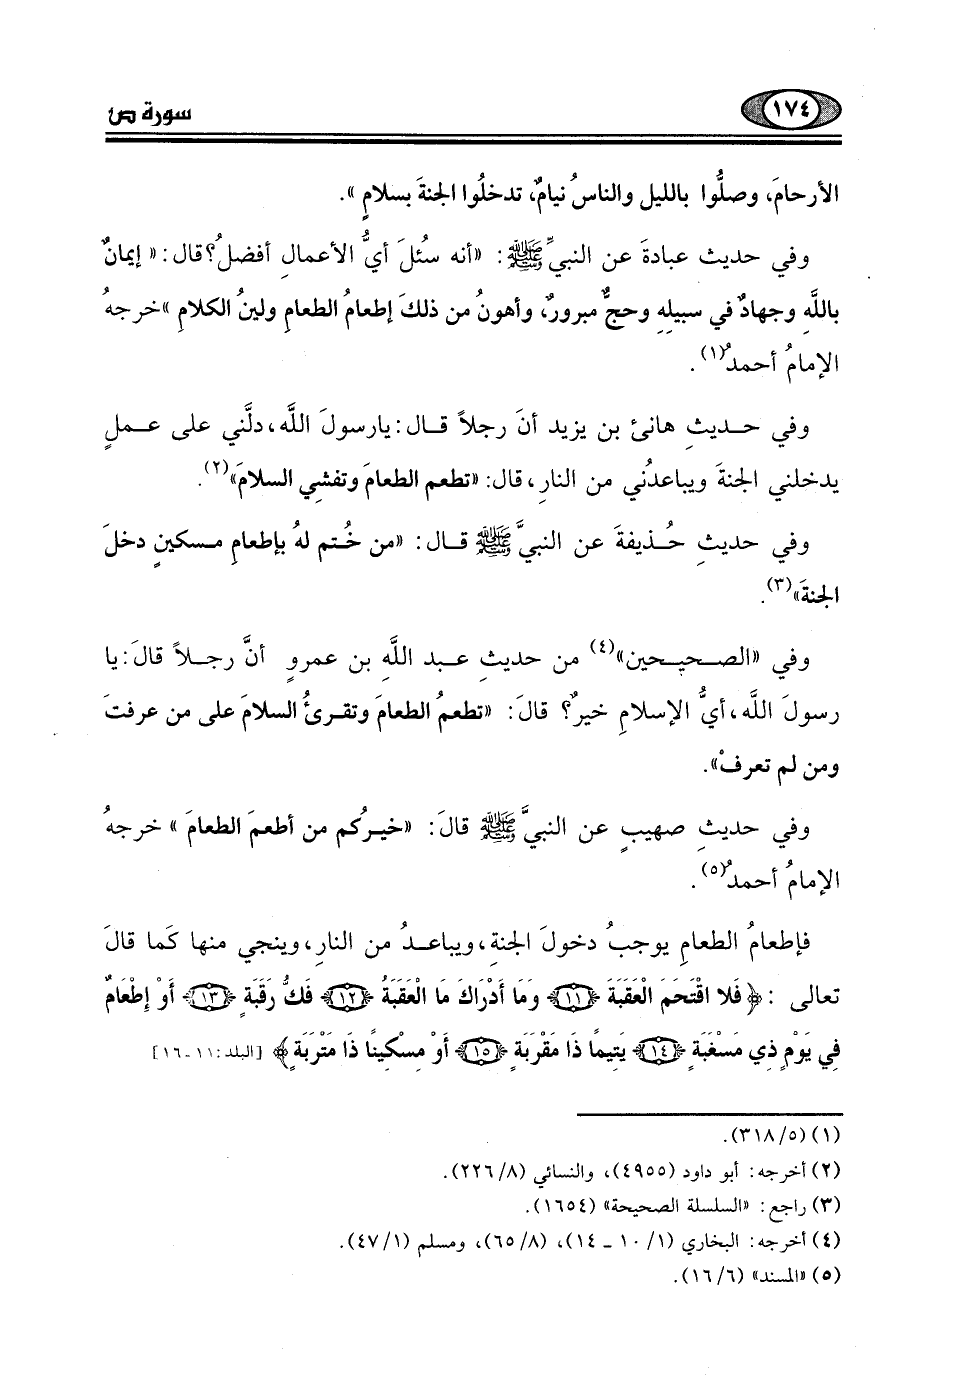 ١٧٤
سورة ص
الأرحامَ، وصلُّوا بالليل والناسُ نيامٌ، تدخلُوا الجنةَ بسلامٍ».
وفي حديث عبادةَ عن النبيِّ ﷺ: «أنه سُئلَ أيُّ الأعمالِ أفضلُ؟ قال: «إيمانٌ
باللَّهِ وجهادٌ في سبيلِهِ وحجٌّ مبرورٌ، وأهونُ من ذلكَ إطعامُ الطعامِ ولينُ الكلامِ» خرجهُ
الإمامُ أحمدُ(١).
وفي حديثِ هانئ بن يزيد أنَ رجلاً قال: يارسولَ اللَّه، دلَّني على عملٍ
يدخلني الجنةَ ويباعدُني من النارِ، قال: «تطعم الطعامَ وتفشي السلامَ»(٢).
وفي حديثِ حُذيفةَ عن النبيَّ ﷺ قال: «من خُتم لهُ بإطعامِ مسكينٍ دخلَ
الجنةَ»(٣).
وفي «الصحيحين»(٤) من حديثِ عبد اللَّهِ بن عمرو أنَّ رجلاً قالَ: يا
رسولَ اللَّه، أيُّ الإسلامِ خيرٌ؟ قالَ: «تطعمُ الطعامَ وتقرئُ السلامَ على من عرفتَ
ومن لم تعرفْ».
وفي حديثِ صهيبٍ عن النبيَّ ﷺ قالَ: «خيرُكم من أطعمَ الطعامَ» خرجهُ
الإمامُ أحمدُ(٥).
فإطعامُ الطعامِ يوجبُ دخولَ الجنةِ، ويباعدُ من النارِ، وينجي منها كَما قالَ
تعالى: ﴿فَلا اقْتَحَمَ الْعَقَبَةَ ﴿١١﴾ وَمَا أَدْرَاكَ مَا الْعَقَبَةُ ﴿١٢﴾ فَكُّ رَقَبَةٍ ﴿١٣﴾ أَوْ إِطْعَامٌ
فِي يَوْمٍ ذِي مَسْغَبَةٍ ﴿١٤﴾ يَتِيمًا ذَا مَقْرَبَةٍ ﴿١٥﴾ أَوْ مِسْكِينًا ذَا مَتْرَبَةٍ﴾ [البلد: ١١ـ١٦]
(١) (٥/ ٣١٨).
(٢) أخرجه: أبو داود (٤٩٥٥)، والنسائي (٨/ ٢٢٦).
(٣) راجع: «السلسلة الصحيحة» (١٦٥٤).
(٤) أخرجه: البخاري (١/ ١٠ ـ ١٤)، (٨/ ٦٥)، ومسلم (١/ ٤٧).
(٥) «المسند» (٦/ ١٦).